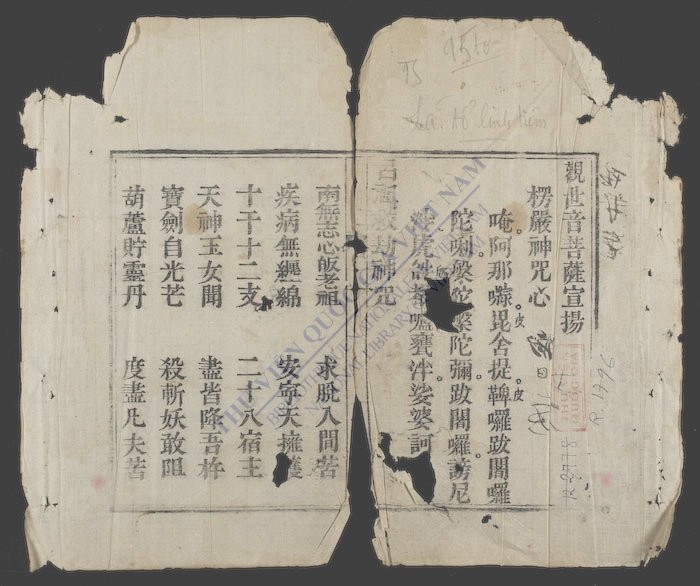 觀世音菩薩宣揚
楞嚴神咒心
唵阿那㘑毘舍提鞞囉跋闍囉
陀唎槃陀槃陀彌跋闍囉謗尼
虎𤙖都嚧甕泮娑婆訶
救劫神咒
南無志心皈老祖 求脫人間苦
疾病無纏綿 安寧天擁護
十干十二支 二十八宿主
天神玉女聞 盡皆降吾杵
寶劍自光芒 殺斬妖敢阻
葫蘆貯靈丹 度盡凡夫苦
THƯ VIỆN QUỐC GIA VIỆT NAM
NATIONAL LIBRARY OF VIETNAM